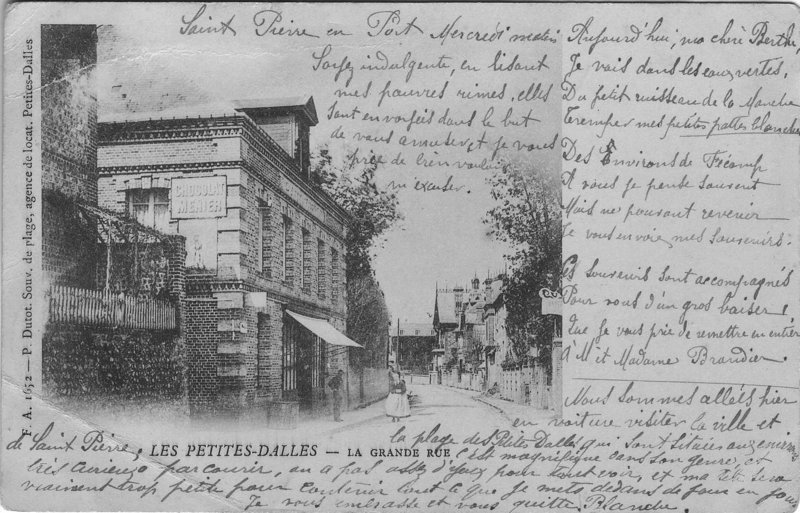 Saint Pierre en Port Mercredi matin
Soyez indulgente, en lisant
mes pauvres rimes, elles
sont envoyés dans le but
de vous amuser, et je vous
prie de bien vouloir
m'excuser.
Aujourd'hui, ma chère Berthe,
Je vais dans les eaux vertes,
Du petit ruisseau de la Manche
Tremper mes petites pattes blanches
Des Environs de Fécamp
A vous je pense souvent
Mais ne pouvant revenir
Je vous envoie mes souvenirs.
Ces souvenirs sont accompagnés
Pour vous d'un gros baiser!
Que je vous prie de remettre en entier
à M et Madame Brandier.
Nous sommes allés hier
en voiture visiter la ville et
la plage des Petites Dalles, qui sont situées aux environs
de Saint Pierre, C'est magnifique dans son genre, et
très curieux à parcourir, on a pas assez d'yeux pour tout voir, et ma tête sera
vraiment trop petite pour contenir tout ce que je mets dedans de jour en jour
Je vous embrasse et vous quitte Blanche.
CHOCOLAT
MENIER
LES PETITES-DALLES — LA GRANDE RUE
F. A. 1652 — P. Dutot. Souv. de plage, agence de locat. Petites-Dalles